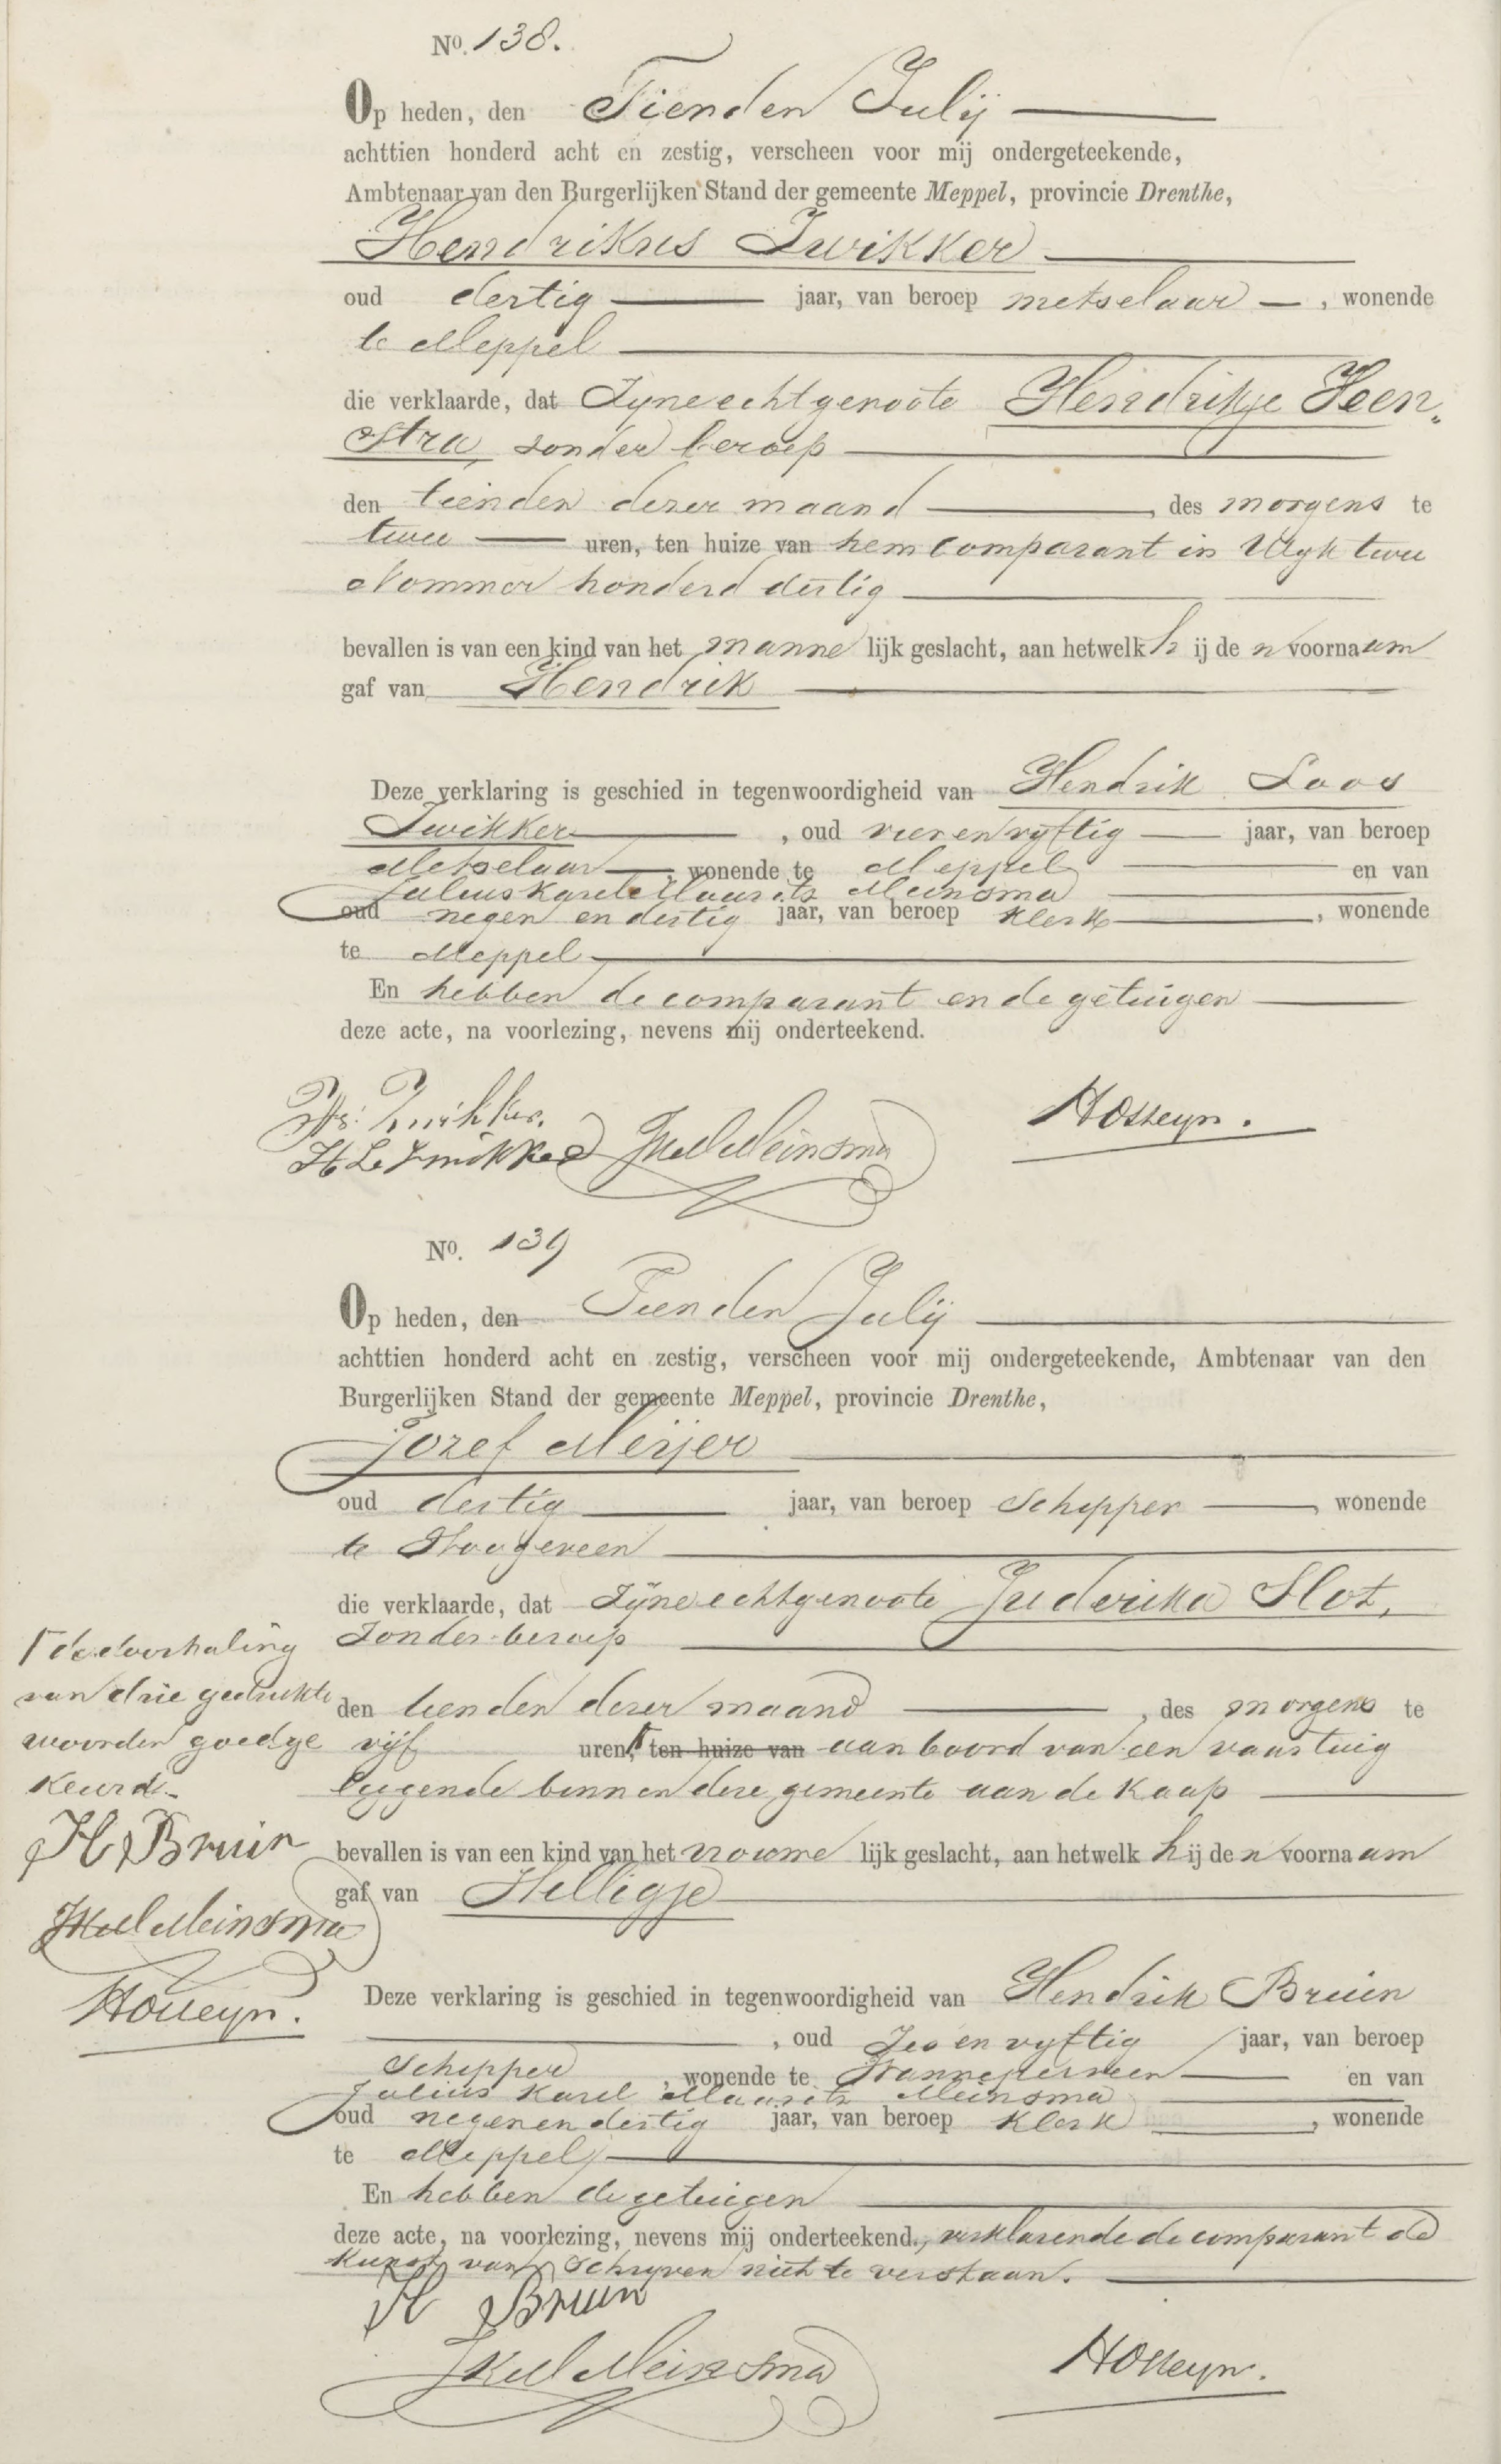 No. 138.
Op heden, den Tienden Julij
achttien honderd acht en zestig, verscheen voor mij ondergeteekende,
Ambtenaar van den Burgerlijken Stand der gemeente Meppel, provincie Drenthe,
Hendrikus Zwikker
oud dertig jaar, van beroep metselaar, wonende
te Meppel
die verklaarde, dat Zyne echtgenoote Hendrikje Heen-
stra, zonder beroep
den tienden dezer maand, des morgens te
twee uren, ten huize van hem Comparant in Wyk twee
Nommer honderd dertig
bevallen is van een kind van het mannelijk geslacht, aan hetwelk hij den voornaam
gaf van Hendrik
Deze verklaring is geschied in tegenwoordigheid van Hendrik Loos
Zwikker, oud vier en vyftig jaar, van beroep
Metselaar, wonende te Meppel en van
Julius Karel Maurits Meinsma
oud negen en dertig jaar, van beroep Klerk, wonende
te Meppel
En hebben de comparant en de getuigen
deze acte, na voorlezing, nevens mij onderteekend.
Hs: Zwikker.
H L Zwikker JKMMeinsma
No. 139
Op heden, den Tienden Julij
achttien honderd acht en zestig, verscheen voor mij ondergeteekende, Ambtenaar van den
Burgerlijken Stand der gemeente Meppel, provincie Drenthe,
Jozef Meijer
oud dertig jaar, van beroep Schipper, wonende
te Hoogeveen
die verklaarde, dat Zijne echtgenoote Frederika Slot,
Zonder beroep
den tienden dezer maand, des morgens te
vijf uren, ten huize van aan boord van een vaartuig
liggende binnen deze gemeente aan de Kaap
bevallen is van een kind van het vrouwelijk geslacht, aan hetwelk hij den voornaam
gaf van Hilligje
de doorhaling
van drie gedrukte
woorden goedge
keurd.
H Bruin
JKMMeinsma
Deze verklaring is geschied in tegenwoordigheid van Hendrik Bruin
, oud Zes en vyftig jaar, van beroep
Schipper, wonende te Wanneperveen en van
Julius Karel Maurits Meinsma
oud negen en dertig jaar, van beroep Klerk, wonende
te Meppel
En hebben de getuigen
deze acte, na voorlezing, nevens mij onderteekend., verklarende de comparant de
Kunst van Schryven niet te verstaan.
H Bruin
JKMMeinsma